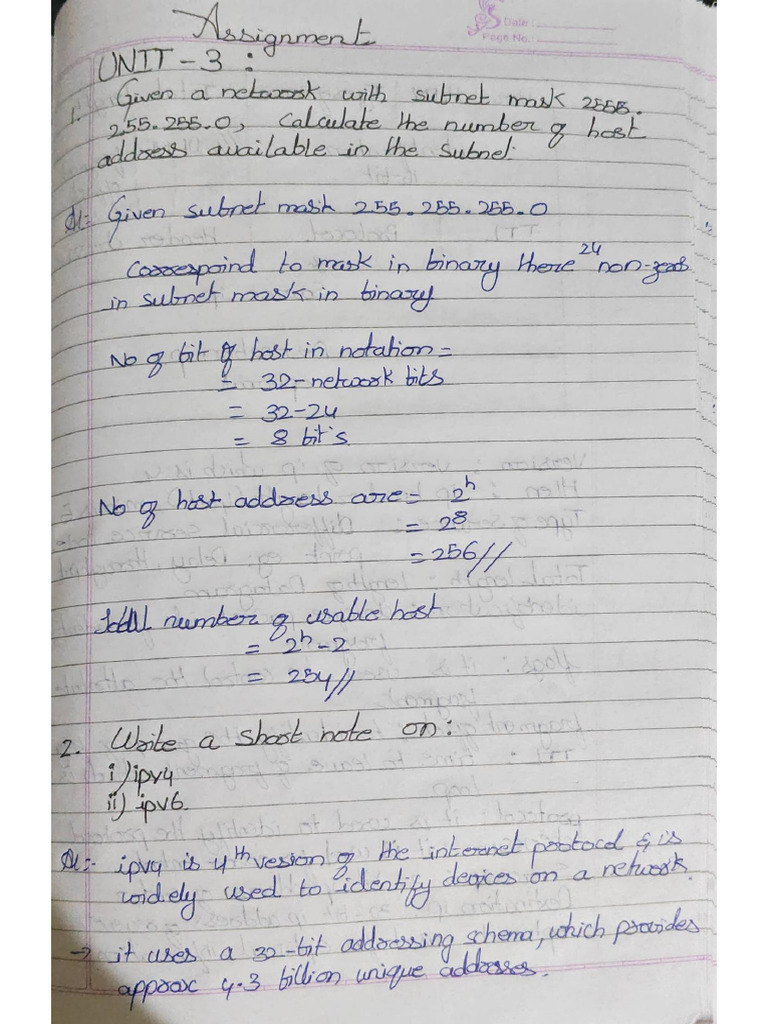 Assignment
Date :
Page No. :
UNIT - 3 :
1. Given a network with subnet mask 2555.
255.255.0, Calculate the number of host
address available in the subnet.
Given subnet mask 255.255.255.0
Correspoind to mask in binary there 24 non-zeros
in subnet mask in binary
No of bit of host in notation =
= 32-network bits
= 32-24
= 8 bit's
No of host address are = 2^h
= 2^8
= 256//
Total number of usable host
= 2^h - 2
= 254//
2. Write a short note on :
i) ipv4
ii) ipv6.
ipv4 is 4th vesion of the internet protocol & is
widely used to identify devices on a network.
→ it uses a 32-bit addressing schema, which provides
approx 4.3 billion unique addresses.